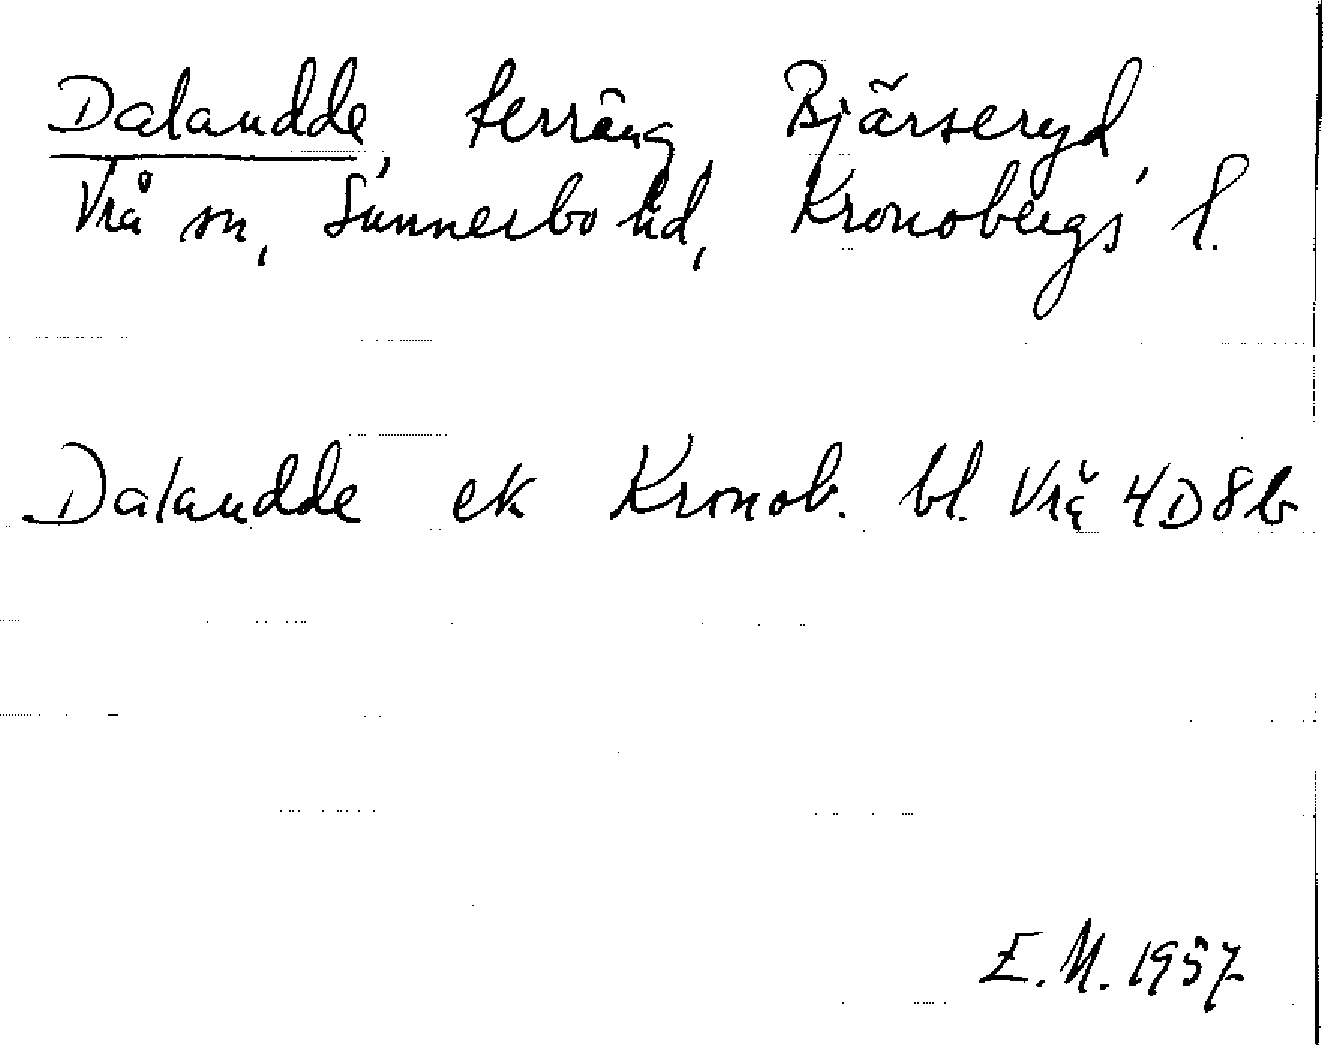 Dalaudde, terräng Bjärseryd,
Vrå sn, Sunnerbo hd, Kronobergs l.
Dalaudde ek Kronob. bl. Vrå 4D8b
E.N. 1957